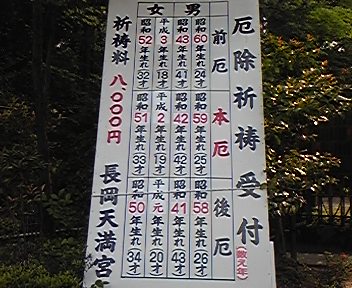 厄除祈祷受付(数え年)
前厄 本厄 後厄
男
昭和60年生れ 24才
昭和59年生れ 25才
昭和58年生れ 26才
昭和43年生れ 41才
昭和42年生れ 42才
昭和41年生れ 43才
女
平成3年生れ 18才
平成2年生れ 19才
平成元年生れ 20才
昭和52年生れ 32才
昭和51年生れ 33才
昭和50年生れ 34才
祈祷料 八、〇〇〇円
長岡天満宮